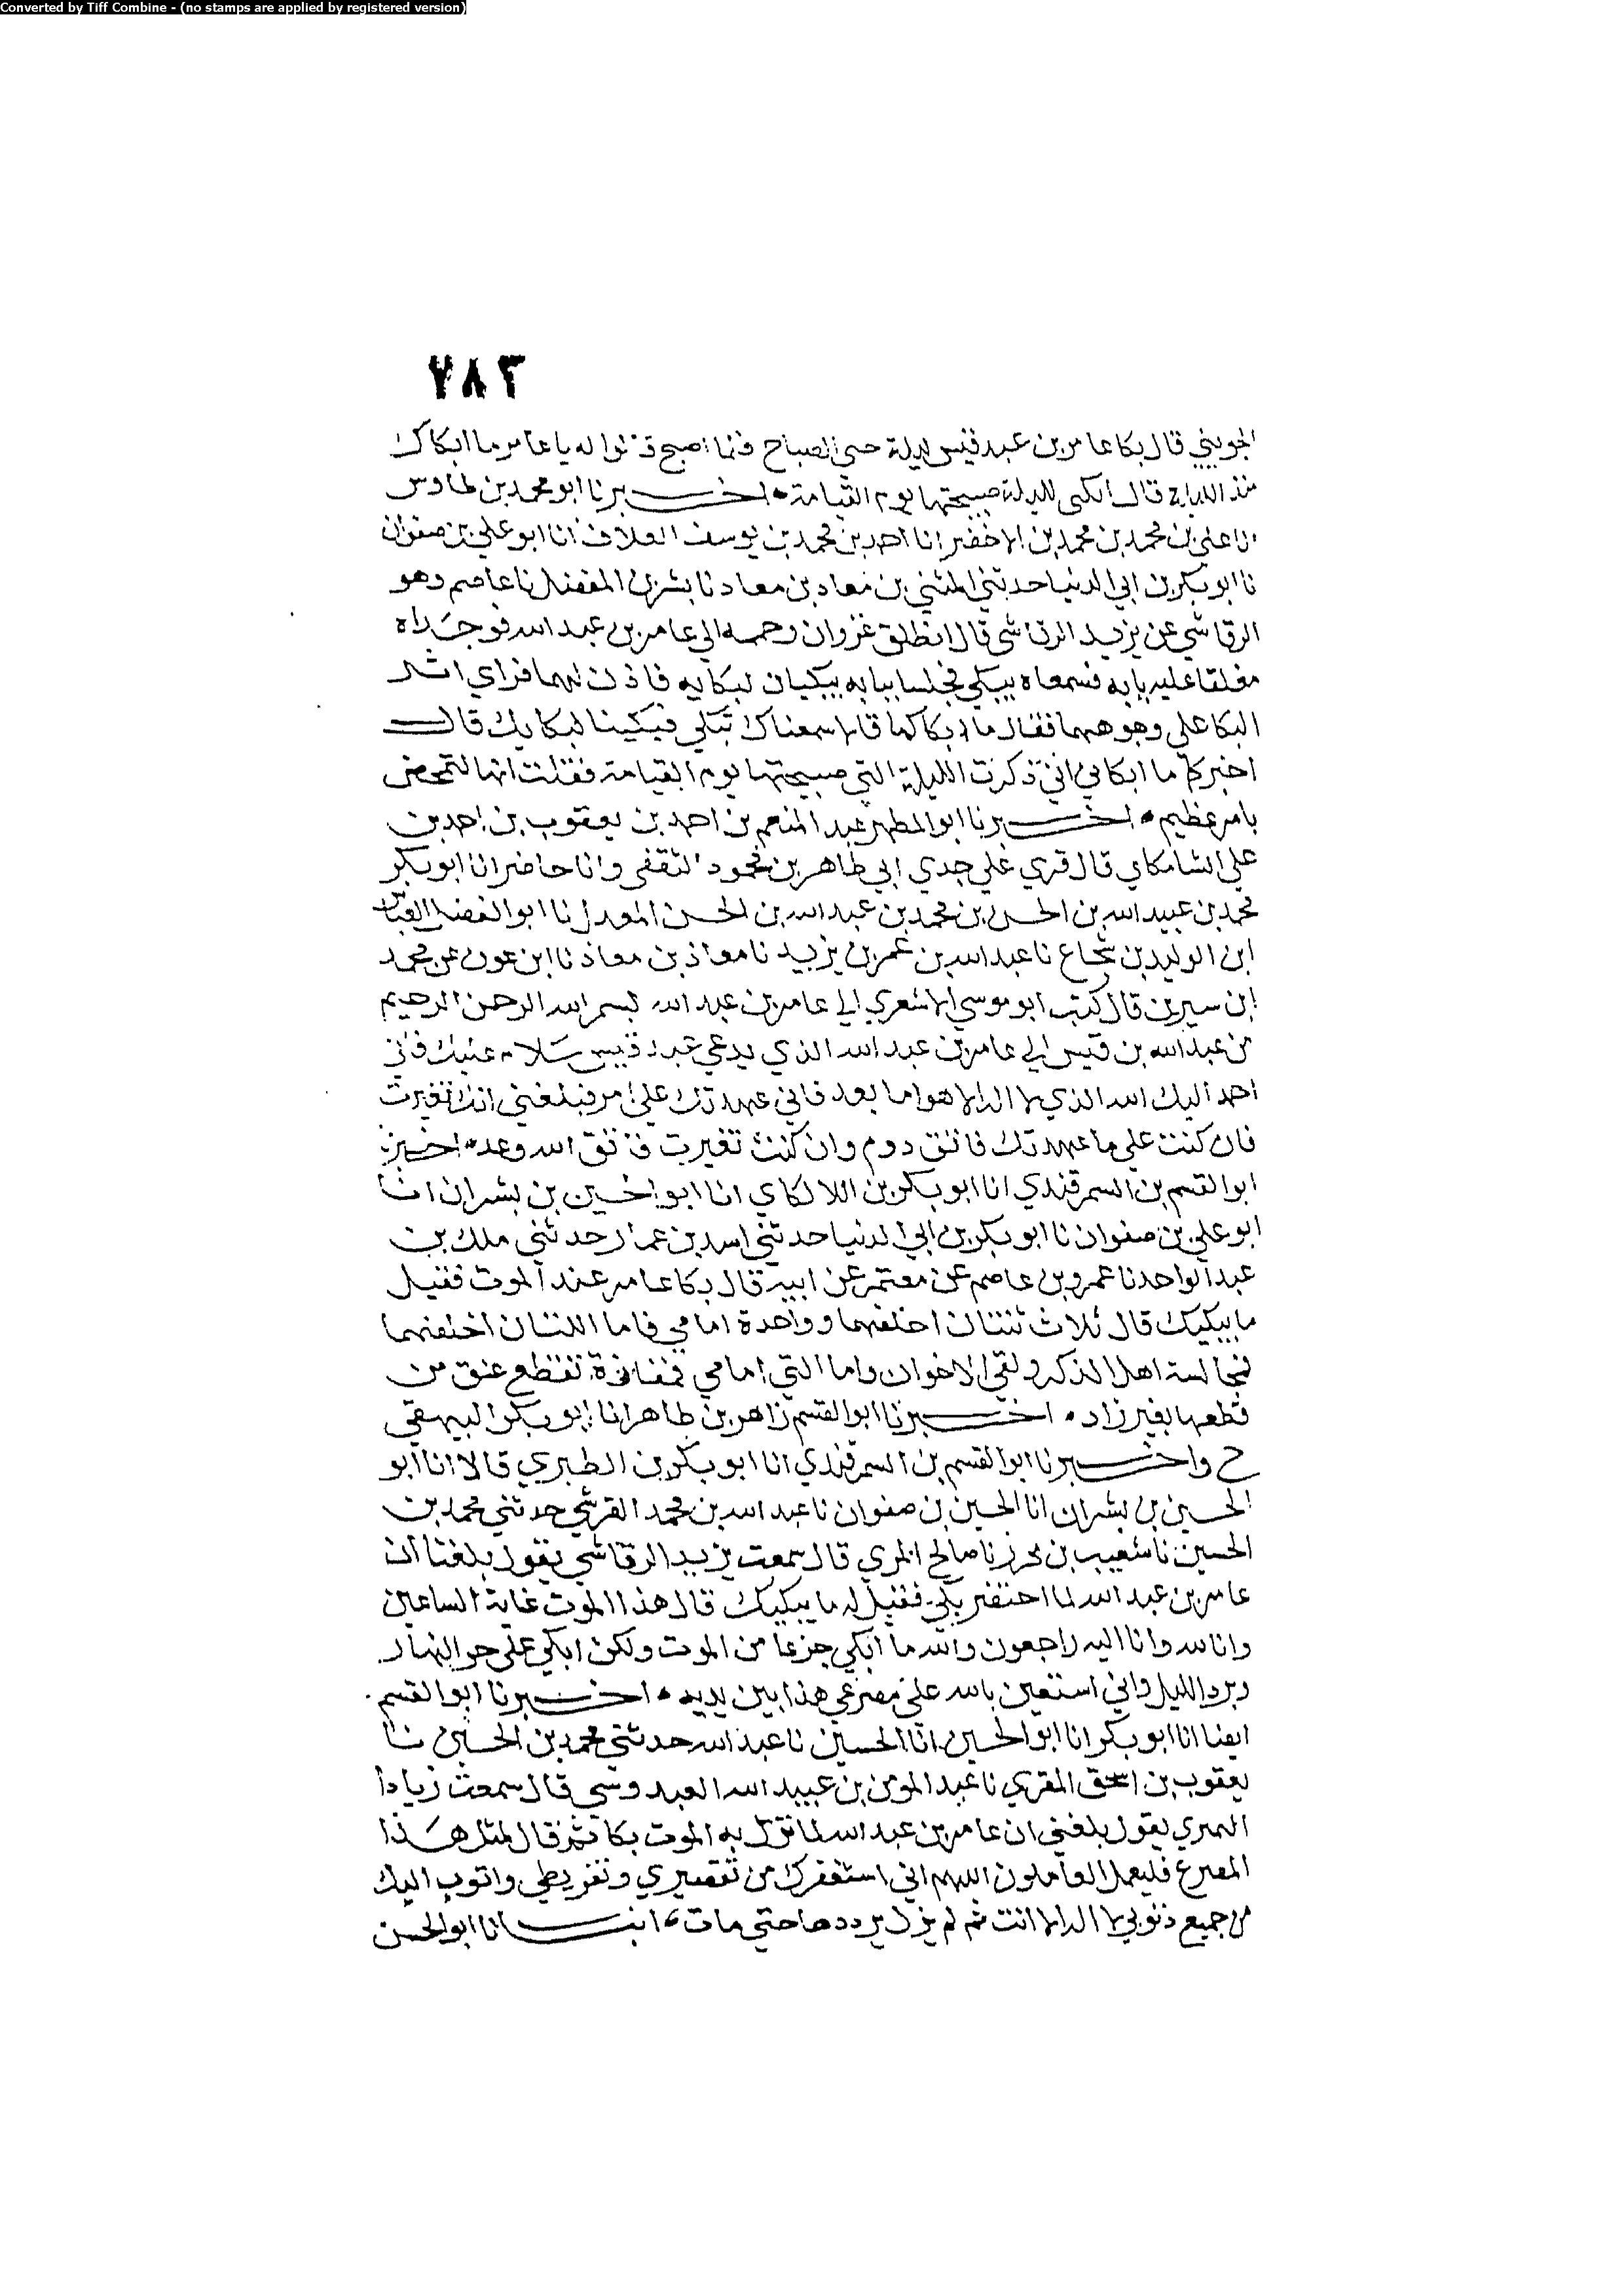 Converted by Tiff Combine - (no stamps are applied by registered version)
٧٨٣
الجويني قال بكا عامر بن عبد قيس ليلة حتى الصباح فلما اصبح قالوا له يا عامر ما ابكاك
منذ الليلة قال ابكي لليلة صبيحتها يوم القيامة اخبرنا ابو محمد بن طاوس
انا علي بن محمد بن محمد بن الاخضر انا احمد بن محمد بن يوسف العلاف انا ابو علي بن صفوان
نا ابو بكر بن ابي الدنيا حدثني المثني بن معاد بن معاد نا بشر بن المفضل نا عاصم وهو
الرقاشي عن يزيد الرقاشي قال انطلق غزوان وحممه الي عامر بن عبد الله فوجداه
مغلقا عليه بابه فسمعاه يبكي فجلسا ببابه يبكيان لبكايه فاذن لهما فراي اثر
البكا علي وجوههما فقال ما ابكاكما قالا سمعناك تبكي فبكينا لبكايك قال
اخبركما ما ابكاني اني ذكرت الليلة التي صبيحتها يوم القيامة فقلت انها لتمخض
بامر عظيم اخبرنا ابو المطهر عبد المنعم بن احمد بن يعقوب بن احمد بن
علي الشامكاي قال قري علي جدي ابي طاهر بن محمود الثقفي وانا حاضر انا ابو بكر
محمد بن عبيد الله بن الحسن بن محمد بن عبد الله بن الحسن المعدل نا ابو الفضل العباس
ابن الوليد بن شجاع نا عبد الله بن عمر بن يزيد نا معاذ بن معاذ نا ابن عون عن محمد
ابن سيرين قال كتب ابو موسي الاشعري الي عامر بن عبد الله بسم الله الرحمن الرحيم
من عبد الله بن قيس الي عامر بن عبد الله الذي يدعي عبد قيس سلام عليك فاني
احمد اليك الله الذي لا اله الا هو اما بعد فاني عهدتك علي امر فبلغني انك تغيرت
فان كنت علي ما عهدتك فاتق ودم وان كنت تغيرت فاتق الله وعد اخبرنا
ابو القسم بن السمرقندي انا ابو بكر بن اللالكاي انا ابو الحسين بن بشران انا
ابو علي بن صفوان نا ابو بكر بن ابي الدنيا حدثني اسد بن عمار حدثني ملك بن
عبد الواحد نا عمرو بن عاصم عن معتمر عن ابيه قال بكا عامر عند الموت فقيل
ما يبكيك قال ثلاث ثنتان اخلفهما وواحدة امامي فاما اللتان اخلفهما
فمجالسة اهل الذكر ولقي الاخوان واما التي امامي فمفازة تقطع عنق من
قطعها بغير زاد اخبرنا ابو القسم زاهر بن طاهر انا ابو بكر البيهقي
ح واخبرنا ابو القسم بن السمرقندي انا ابو بكر بن الطبري قالا انا ابو
الحسين بن بشران انا الحسين بن صفوان نا عبد الله بن محمد القرشي حدثني محمد بن
الحسين نا شعيب بن محرز نا صالح المري قال سمعت يزيد الرقاشي يقول بلغنا ان
عامر بن عبد الله لما احتضر بكي فقيل له ما يبكيك قال هذا الموت غاية الساعين
وانا لله وانا اليه راجعون والله ما ابكي جزعا من الموت ولكن ابكي علي حر النهار
وبرد الليل واني استعين بالله علي مصرعي هذا بين يديه اخبرنا ابو القسم
ايضا انا ابو بكر انا ابو الحسين انا الحسين نا عبد الله حدثني محمد بن الحسين نا
يعقوب بن اسحق المقري نا عبد المومن بن عبيد الله العبدوسي قال سمعت زيادا
النمري يقول بلغني ان عامر بن عبد الله لما نزل به الموت بكا ثم قال لمثل هذا
المصرع فليعمل العاملون اللهم اني استغفرك من تقصيري وتفريطي واتوب اليك
من جميع ذنوبي لا اله الا انت ثم لم يزل يرددها حتي مات انبانا ابو الحسن